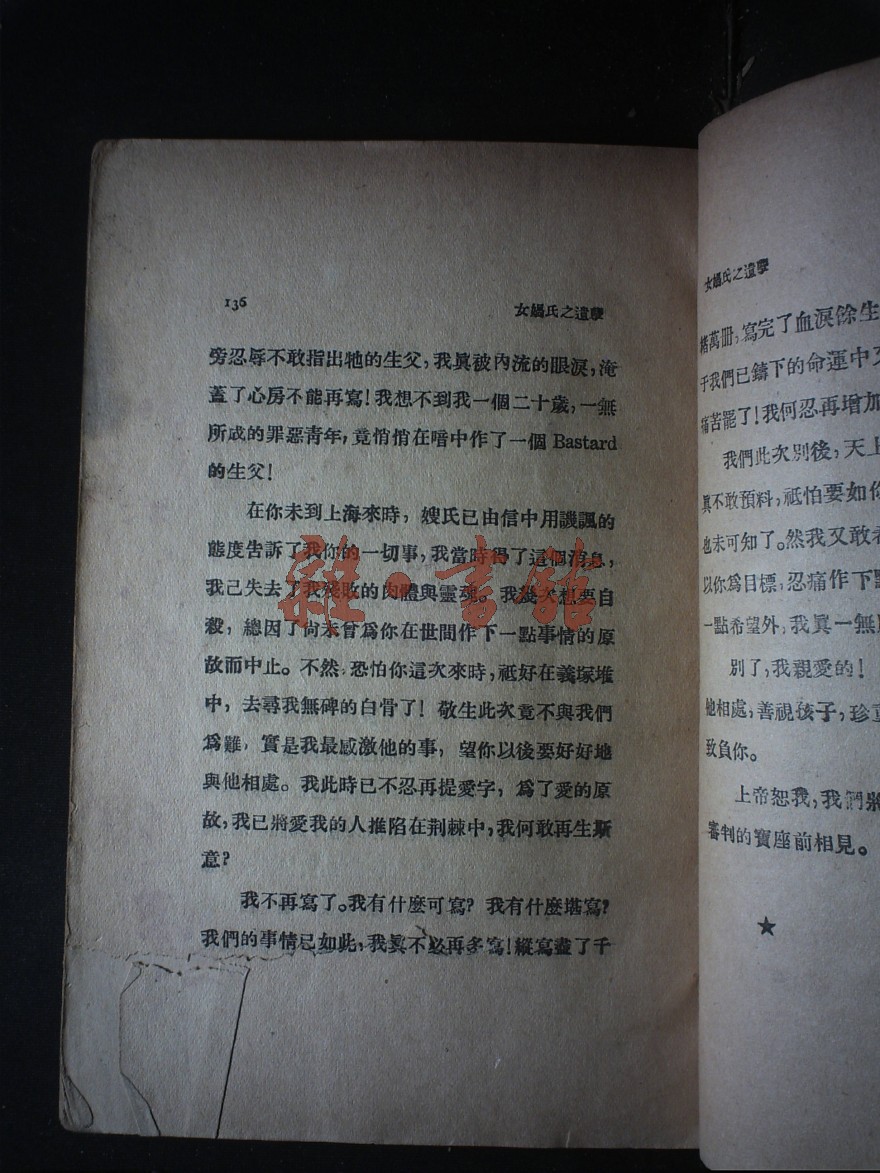 136
女媧氏之遺孽
旁忍辱不敢指出牠的生父，我眞被內流的眼淚，淹
蓋了心房不能再寫！我想不到我一個二十歲，一無
所成的罪惡靑年，竟悄悄在暗中作了一個 Bastard
的生父！
在你未到上海來時，嫂氏已由信中用譏諷的
態度告訴了我你的一切事，我當時得了這個消息，
我已失去了我殘敗的肉體與靈魂。我幾次想要自
殺，總因了尙未曾爲你在世間作下一點事情的原
故而中止。不然，恐怕你這次來時，祗好在義塚堆
中，去尋我無碑的白骨了！敬生此次竟不與我們
爲難，實是我最感激他的事，望你以後要好好地
與他相處。我此時已不忍再提愛字，爲了愛的原
故，我已將愛我的人推陷在荆棘中，我何敢再生斯
意？
我不再寫了。我有什麼可寫？我有什麼堪寫？
我們的事情已如此，我眞不必再多寫！縱寫盡了千
雜·書館
女媧氏之遺孽
緒萬冊，寫完了血淚餘生
于我們已鑄下的命運中又
痛苦罷了！我何忍再增加
我們此次別後，天上
眞不敢預料，祗怕要如你
也未可知了。然我又敢希
以你爲目標，忍痛作下點
一點希望外，我眞一無
別了，我親愛的！
他相處，善視孩子，珍重
致負你。
上帝恕我，我們將
審判的寶座前相見。
★